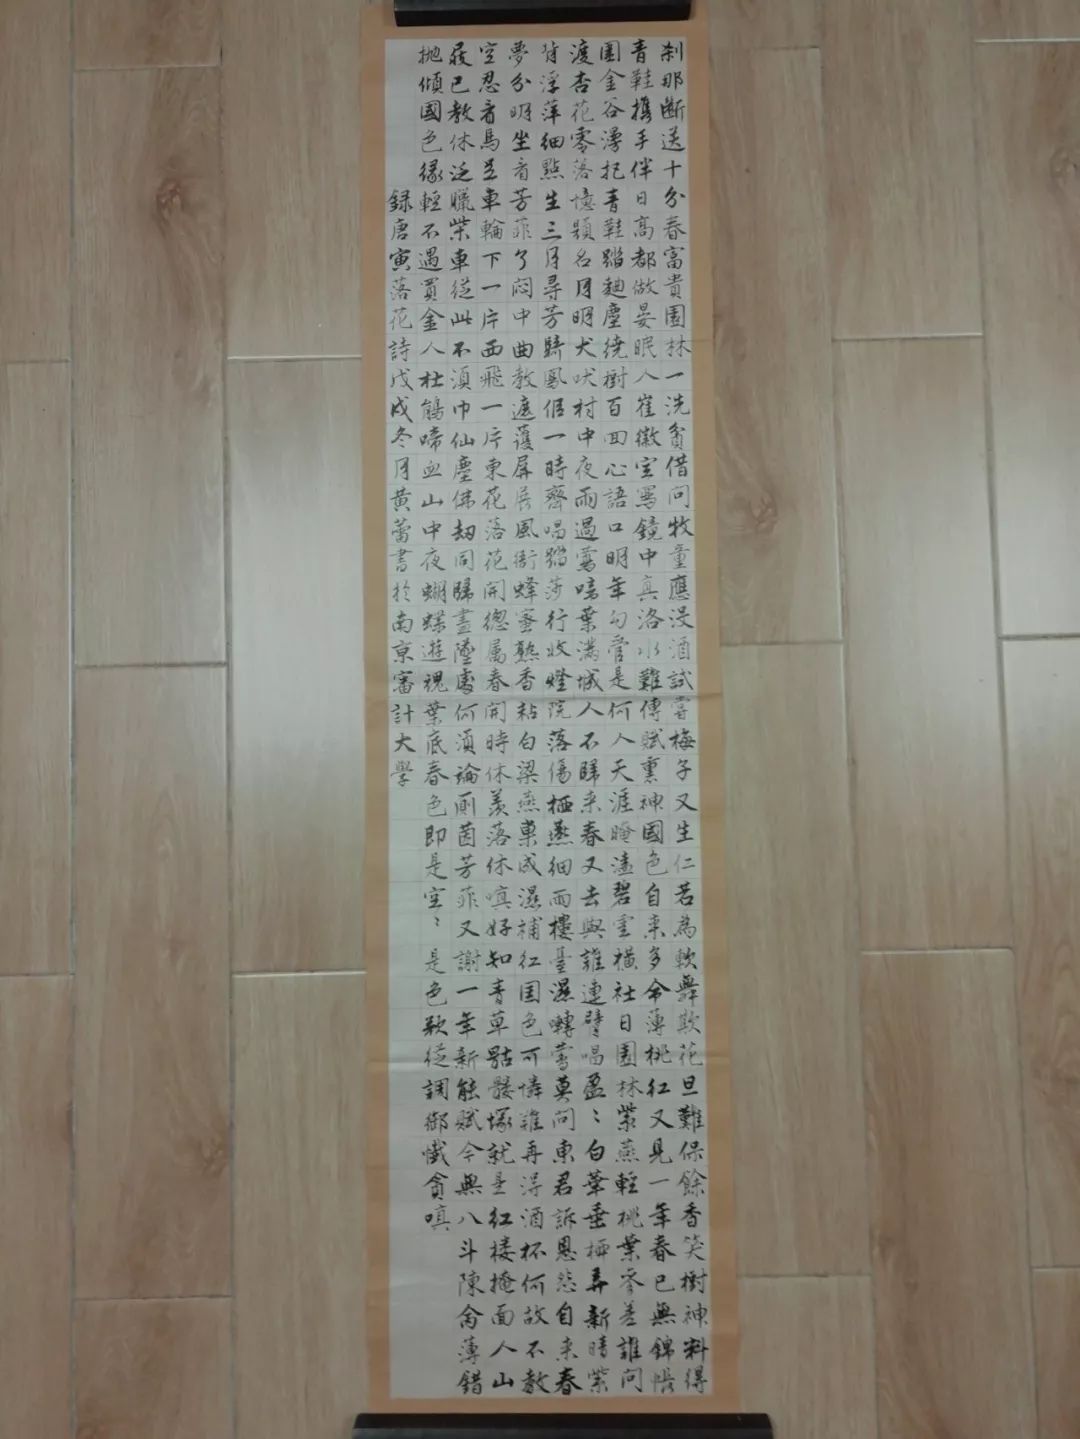 刹那斷送十分春富貴園林一洗貧借問牧童應沒酒試嘗梅子又生仁若為軟舞欺花旦難保餘香笑樹神料得
青鞋攜手伴日高都做晏眠人崔徽空寫鏡中真洛水難傳賦裏神國色自來多命薄桃紅又見一年春已無錦帳
圍金谷漫把青鞋踏麯塵繞樹百回心語口明年勾管是何人天涯晻溘碧雲橫社日園林紫燕輕桃葉參差誰問
渡杏花零落憶題名月明犬吠村中夜雨過鶯啼葉滿城人不歸來春又去與誰連臂唱盈〻白葉垂楊弄新晴紫
背浮萍細點生三月尋芳驕鳳侶一時齊唱踏莎行收燈院落傷栖燕細雨樓臺濕轉鶯莫問東君訴恩怨自來春
夢分明坐看芳菲了悶中曲教遮護屏展風衙蜂蜜熟香粘白梁燕巢成濕補紅國色可憐誰再得酒杯何故不教
空忍看馬足車輪下一片西飛一片東花落花開總屬春開時休羨落休嗔好知青草骷髏塚就是紅樓掩面人山
屐已教休泛蠟柴車從此不須巾仙塵佛劫同歸盡墜處何須論廁茵芳菲又謝一年新能賦今無八斗陳命薄錯
拋傾國色緣輕不遇買金人杜鵑啼血山中夜蝴蝶遊魂葉底春色即是空〻是色欵從調御懺貪嗔
錄唐寅落花詩戊戌冬月黃蕾書於南京審計大學